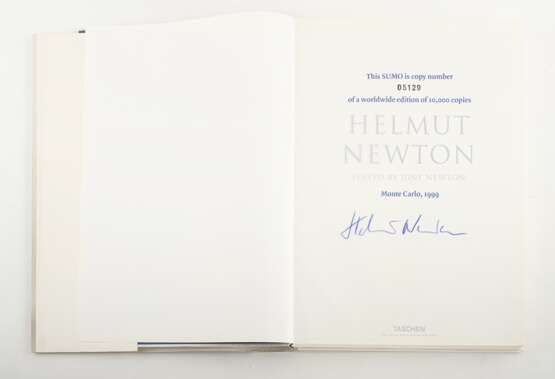 This SUMO is copy number
05129
of a worldwide edition of 10,000 copies
HELMUT
NEWTON
EDITED BY JUNE NEWTON
Monte Carlo, 1999
Helmut Newton
TASCHEN